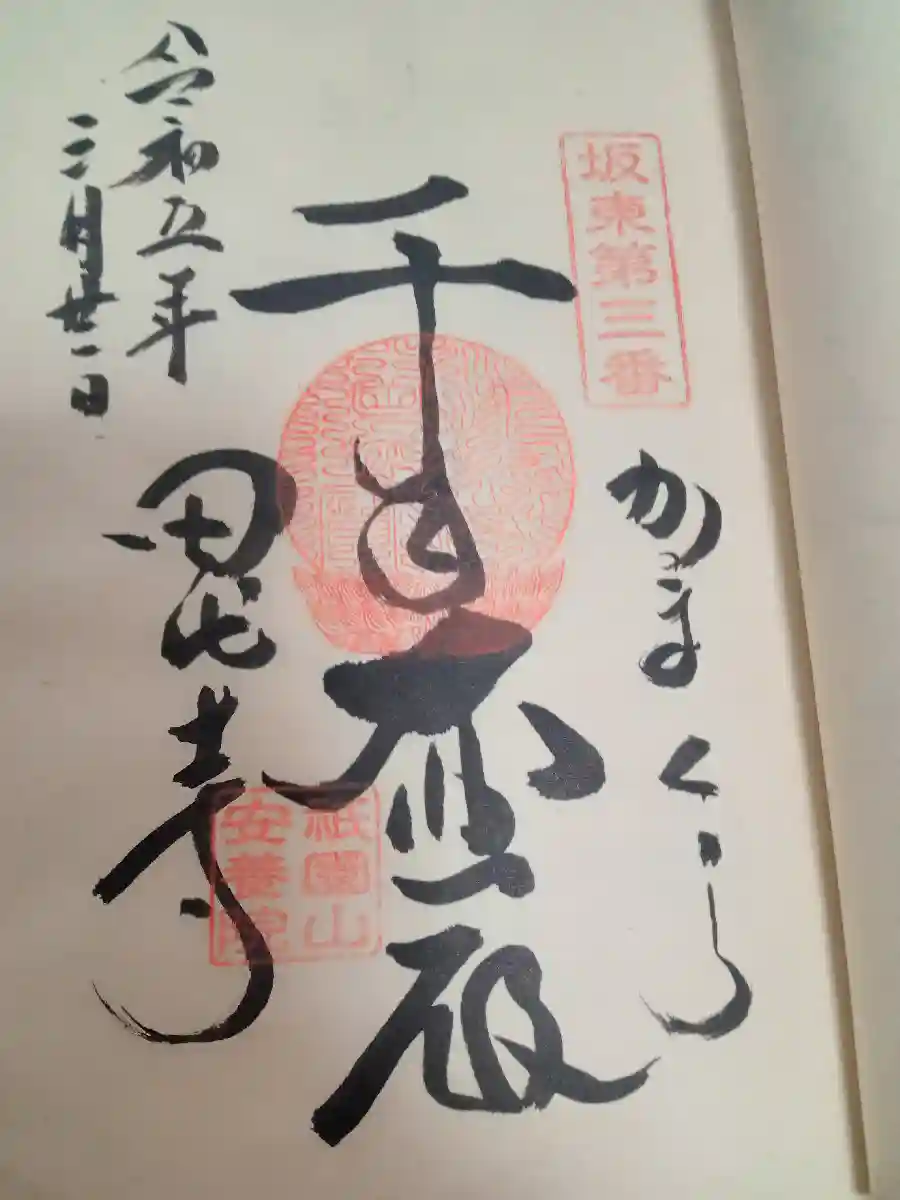 坂東第三番
かまくら
千手大悲殿
田代寺
祇園山
安養院
令和五年
三月廿一日